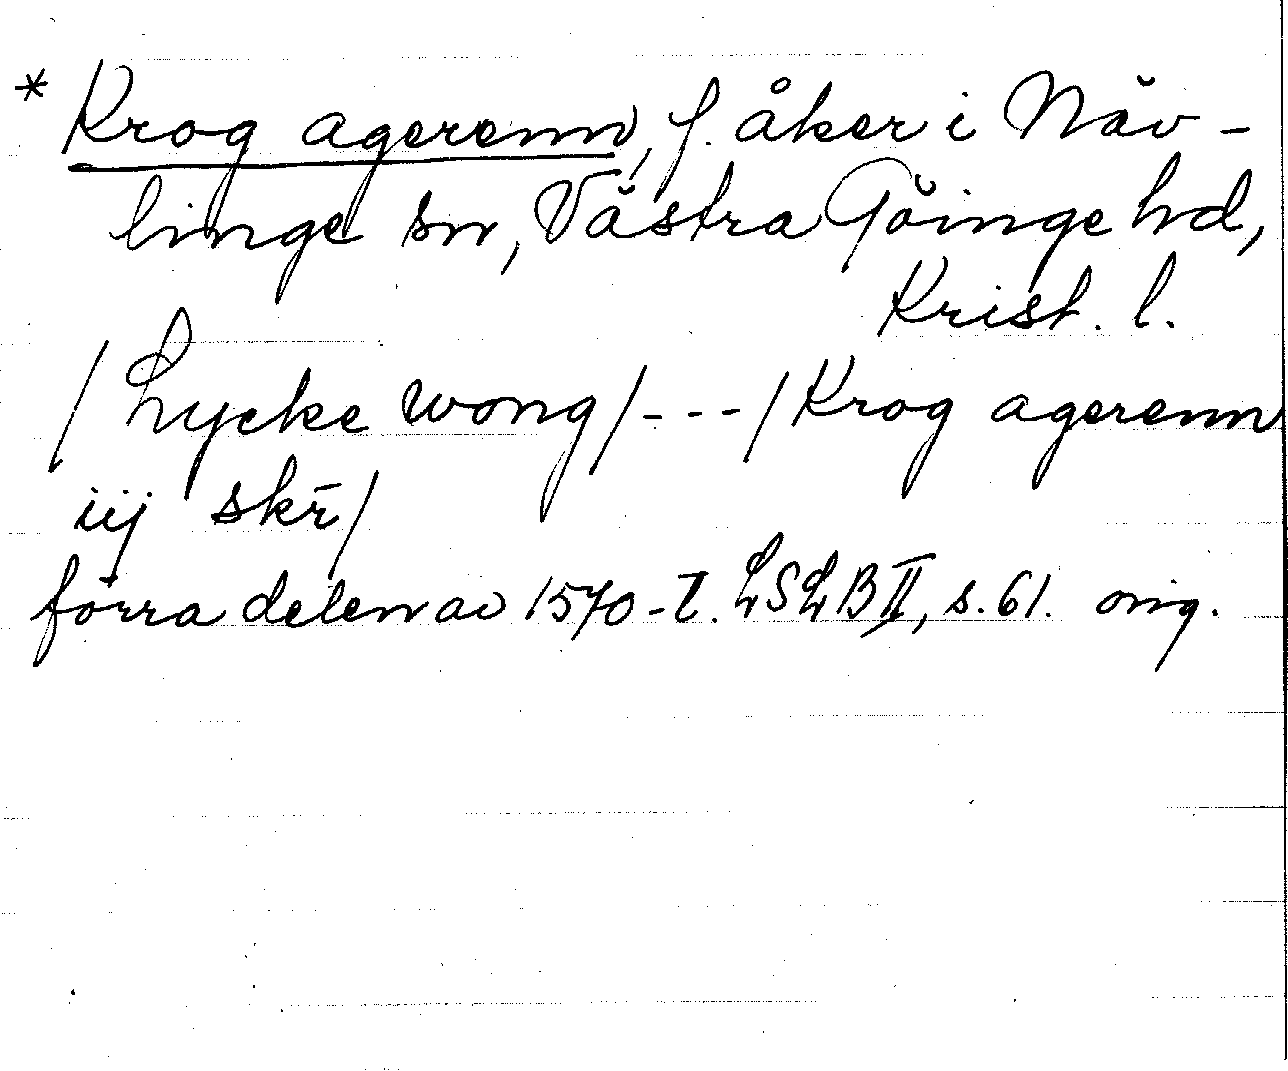 * Krog agerenn, f. åker i Näv-
linge sn, Västra Göinge hd,
Krist. l.
/Lycke wong/---/Krog agerenn
iij skr̄/
förra delen av 1570-t. LSLB II, s. 61. orig.